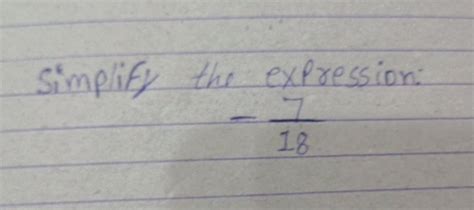 Simplify the expression:
- 7/18